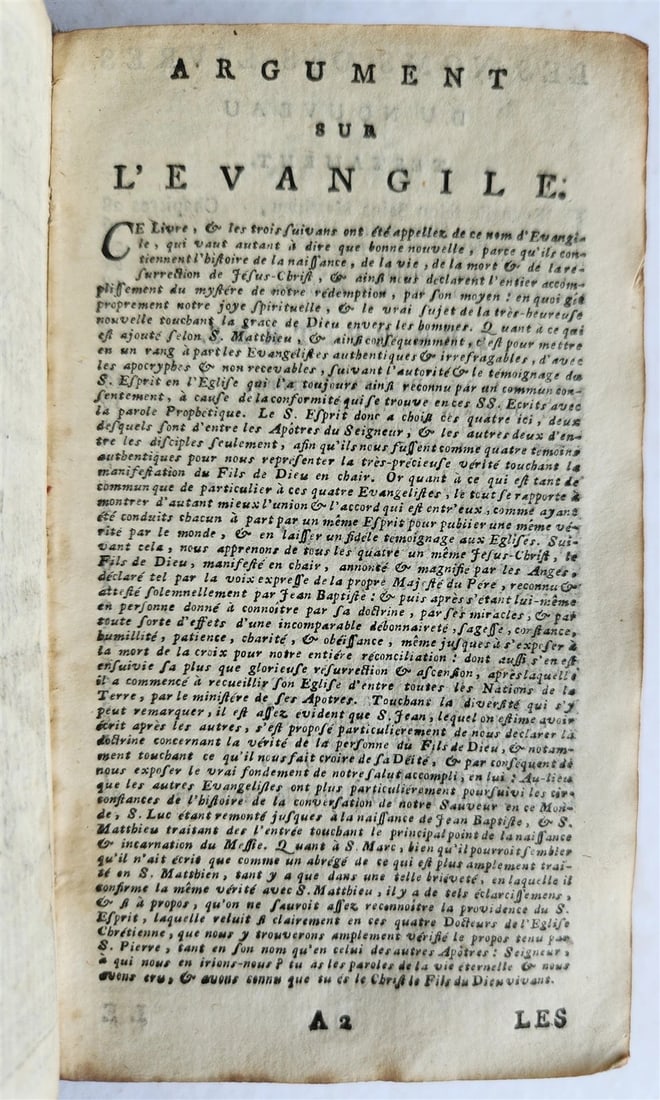 ARGUMENT
SUR
L'EVANGILE.
CE Livre, & les trois suivans ont été appellez de ce nom d'Evangi-
le, qui vaut autant à dire que bonne nouvelle, parce qu'ils con-
tiennent l'histoire de la naissance, de la vie, de la mort & de la re-
surrection de Jésus-Christ, & ainsi nous déclarent l'entier accom-
plissement du mystére de notre rédemption, par son moyen: en quoi gît
proprement notre joye spirituelle, & le vrai sujet de la très-heureuse
nouvelle touchant la grace de Dieu envers les hommes. Quant à ce qui
est ajouté selon S. Matthieu, & ainsi conséquemment, c'est pour mettre
en un rang à part les Evangélistes authentiques & irrefragables, d'avec
les apocryphes & non recevables, suivant l'autorité & le témoignage du
S. Esprit en l'Eglise qui l'a toujours ainsi reconnu par un commun con-
sentement, à cause de la conformité qui se trouve en ces SS. Ecrits avec
la parole Prophétique. Le S. Esprit donc a choisi ces quatre ici, deux
desquels sont d'entre les Apôtres du Seigneur, & les autres deux d'en-
tre les disciples seulement, afin qu'ils nous fussent comme quatre temoins
authentiques pour nous représenter la très-précieuse vérité touchant la
manifestation du Fils de Dieu en chair. Or quant à ce qui est tant de
commun que de particulier à ces quatre Evangelistes, le tout se rapporte à
montrer d'autant mieux l'union & l'accord qui est entr'eux, comme ayant
été conduits chacun à part par un même Esprit pour publier une même vé-
rité par le monde, & en laisser un fidéle témoignage aux Eglises. Sui-
vant cela, nous apprenons de tous les quatre un même Jesus-Christ, le
Fils de Dieu, manifesté en chair, annoncé & magnifié par les Anges,
déclaré tel par la voix expresse de la propre Majesté du Pére, reconnu &
attesté solemnellement par Jean Baptiste: & puis après s'étant lui-même
en personne donné à connoître par sa doctrine, par ses miracles, & par
toute sorte d'effets d'une incomparable débonnaireté, sagesse, constance,
humilité, patience, charité, & obéissance, même jusques à s'exposer à
la mort de la croix pour notre entiére réconciliation: dont aussi s'en est
ensuivie sa plus que glorieuse résurrection & ascension, après laquelle
il a commencé à recueillir son Eglise d'entre toutes les Nations de la
Terre, par le ministére de ses Apotres. Touchant la diversité qui s'y
peut remarquer, il est assez evident que S. Jean, lequel on estime avoir
écrit après les autres, s'est proposé particulierement de nous declarer la
doctrine concernant la vérité de la personne du Fils de Dieu, & notam-
ment touchant ce qu'il nous fait croire de sa Déité, & par conséquent de
nous exposer le vrai fondement de notre salut accompli, en lui: Au-lieu
que les autres Evangelistes ont plus particuliérement poursuivi les cir-
constances de l'histoire de la conversation de notre Sauveur en ce Mon-
de, S. Luc étant remonté jusques à la naissance de Jean Baptiste, & S.
Matthieu traitant des l'entrée touchant le principal point de la naissance
& incarnation du Messie. Quant à S. Marc, bien qu'il pourroit sembler
qu'il n'ait écrit que comme un abrégé de ce qui est plus amplement trai-
té en S. Matthieu, tant y a que dans une telle briéveté, en laquelle il
confirme la même vérité avec S. Matthieu, il y a de tels éclarcissemens,
& si à propos, qu'on ne sauroit assez reconnoitre la providence du S.
Esprit, laquelle reluit si clairement en ces quatre Docteurs de l'Eglise
Chrétienne, que nous y trouverons amplement vérifié le propos tenu par
S. Pierre, tant en son nom qu'en celui des autres Apôtres: Seigneur,
à qui nous en irions-nous? tu as les paroles de la vie éternelle & nous
avons cru, & avons connu que tu és le Christ le Fils du Dieu vivant.
A 2 LES